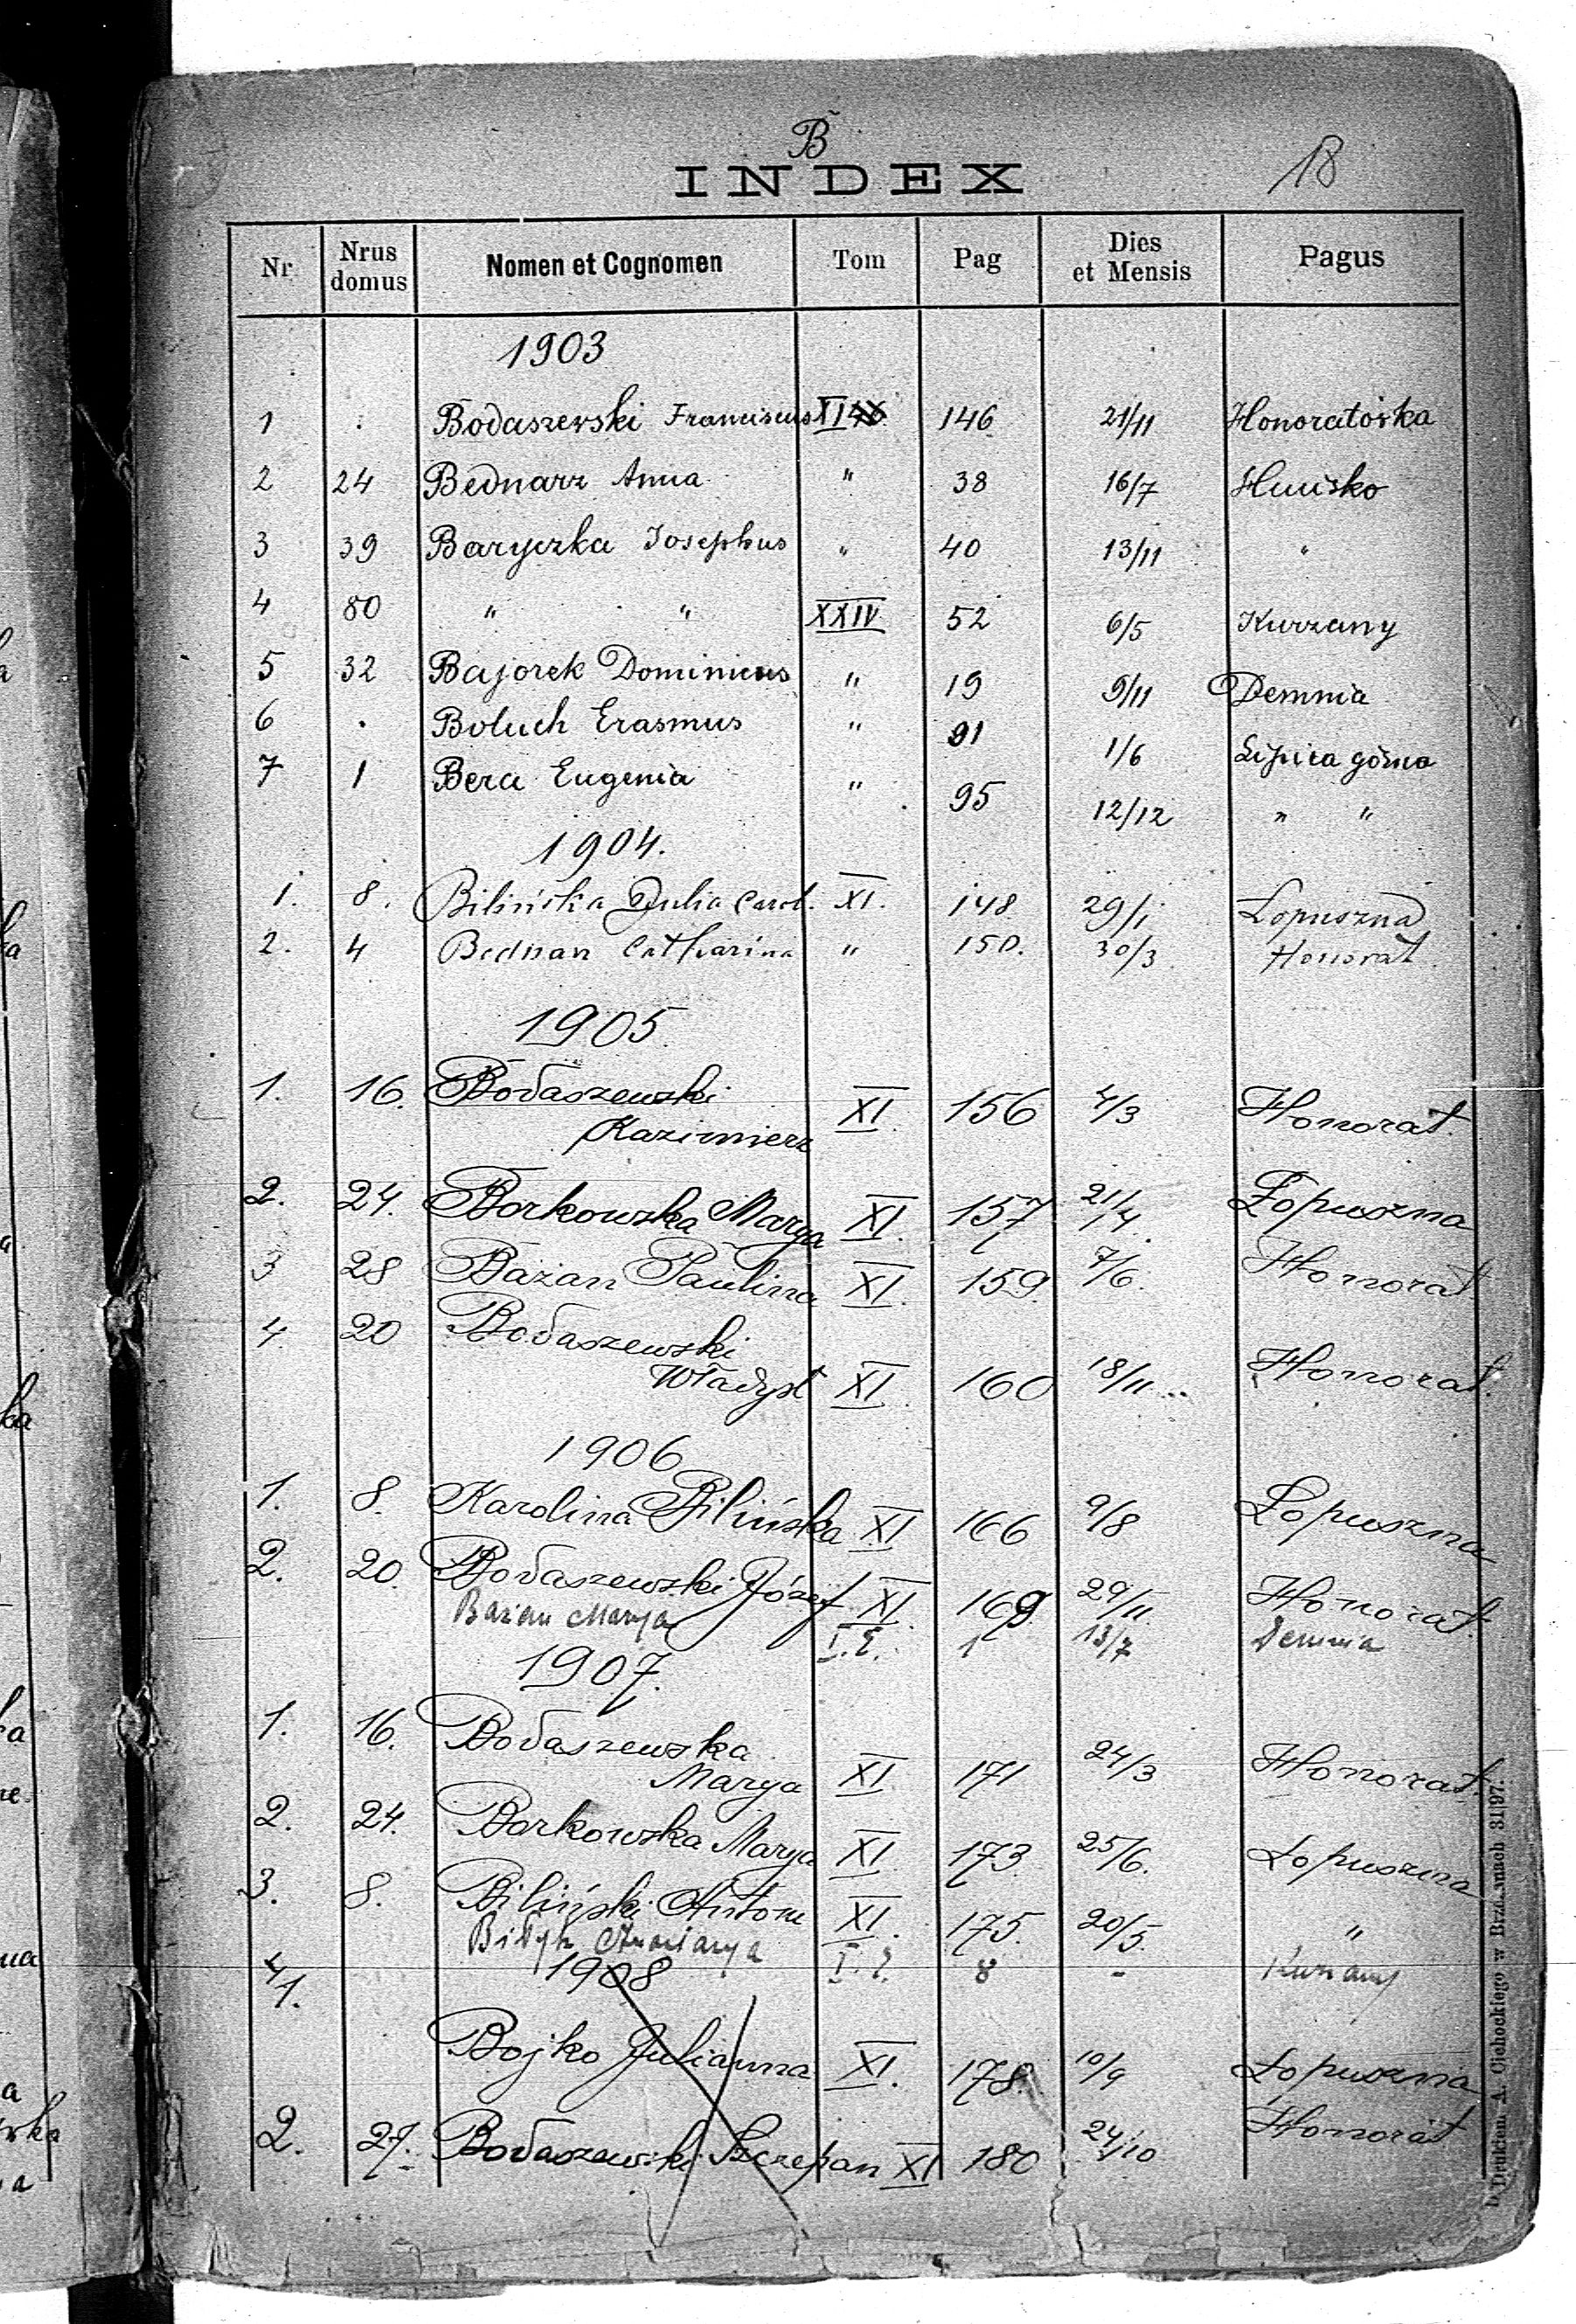 B
INDEX
18
Nr
Nrus domus
Nomen et Cognomen
Tom
Pag
Dies et Mensis
Pagus
1903
1 . Bodaszewski Franciscus XI 146 21/11 Honoratówka
2 24 Bednarz Anna " 38 16/7 Huuisko
3 39 Baryczka Josephus " 40 13/11 "
4 80 " " XXIV 52 6/5 Kurzany
5 32 Bajorek Dominicus " 19 9/11 Demnia
6 . Boluch Erasmus " 91 1/6 Lipica górna
7 1 Bera Eugenia " 95 12/12 " "
1904.
1. 8. Bilińska Julia Carol. XI. 148 29/1 Lopuszna
2. 4 Bednarz Catharina " 150. 30/3 Honorat.
1905.
1. 16. Bodaszewski
Kazimierz XI. 156 4/3 Honorat.
2. 24. Borkowska Marya XI. 157 21/4. Łopuszna
3 28 Bażan Paulina XI. 159. 7/6. Honorat.
4. 20 Bodaszewski
Władysł XI. 160 18/11.. Honorat.
1906
1. 8. Karolina Bilińska XI 166 9/8 Lopuszna
2. 20. Bodaszewski Józef XI. 169 29/11. Honorat.
Bażan Marya I.E. 1 13/7 Demnia
1907.
1. 16. Bodaszewska
Marya XI. 171 24/3 Honorat.
2. 24. Borkowska Marya XI. 173 25/6. Łopuszna
3. 8. Biliński Antoni XI. 175. 20/5. "
4 Bidyk I.E. 8 - Kurzany
1908
1. Bojko Julianna XI. 178. 10/9 Łopuszna
2. 27. Bodaszewski Szczepan XI 180 24/10 Honorat
Drukiem A. Cichockiego w Brzeżanach 31|97.